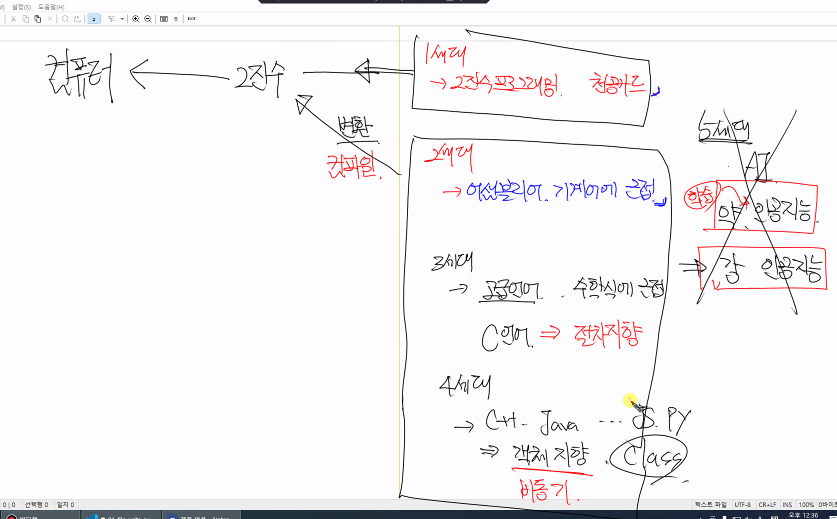 설정(S) 도움말(H)
컴퓨터 ← 2진수 ←
변환
컴파일.
1세대
→ 2진수프로그래밍. 천공카드
2세대
→ 어셈블리어. 기계어에 근접
3세대
→ 고급언어. 수학식에 근접
C언어. ⇒ 절차지향
4세대
→ C++ - Java ... JS. PY
⇒ 객체 지향. Class
비동기.
5세대
AI
학습
약 인공지능
⇒ 강 인공지능
0 | 0 선택행 0 일지 0
텍스트 파일 UTF-8 CR+LF INS 100%
오후 12:36